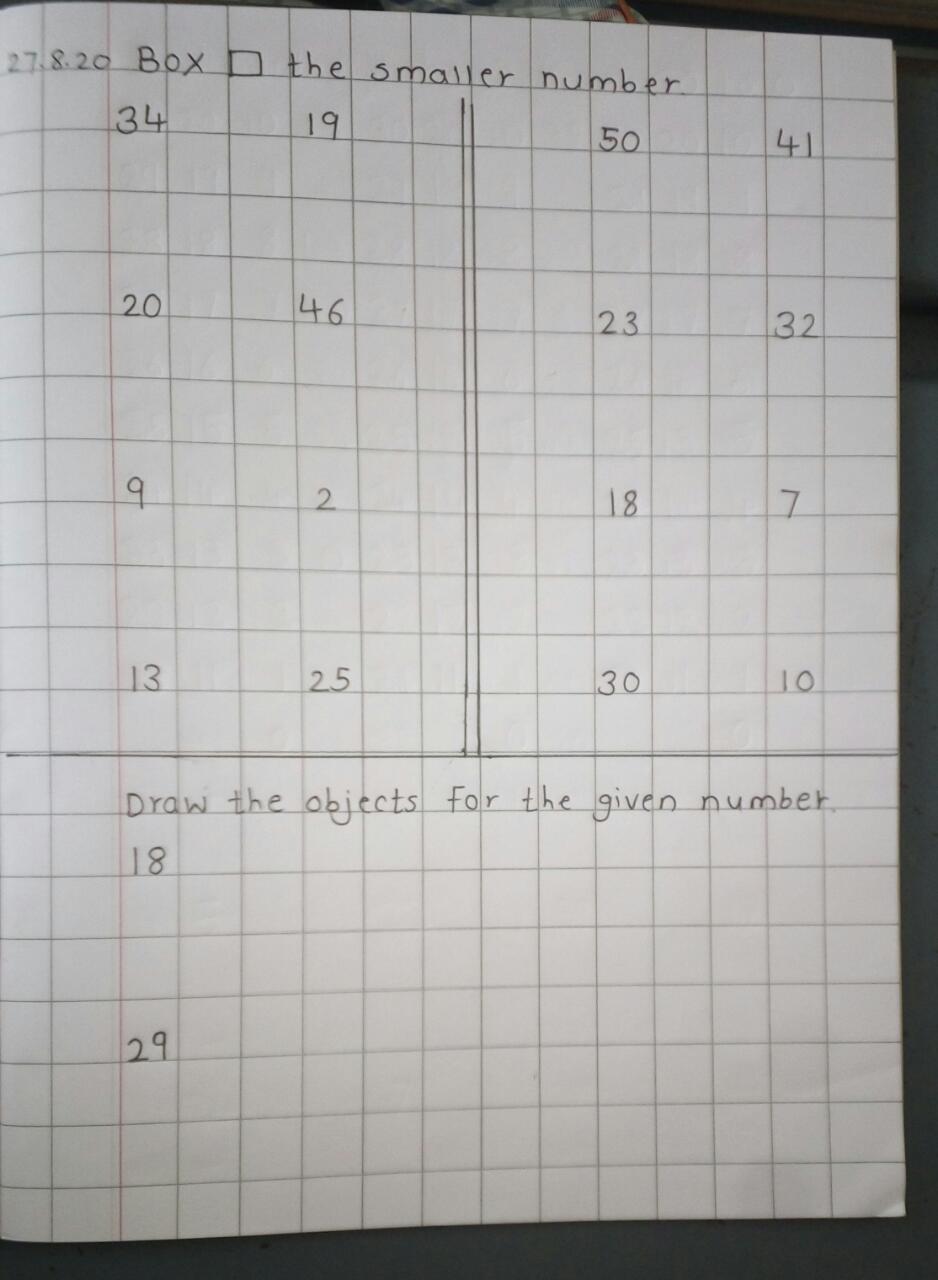 27.8.20 Box □ the smaller number.
34 19 50 41
20 46 23 32
9 2 18 7
13 25 30 10
Draw the objects for the given number.
18
29